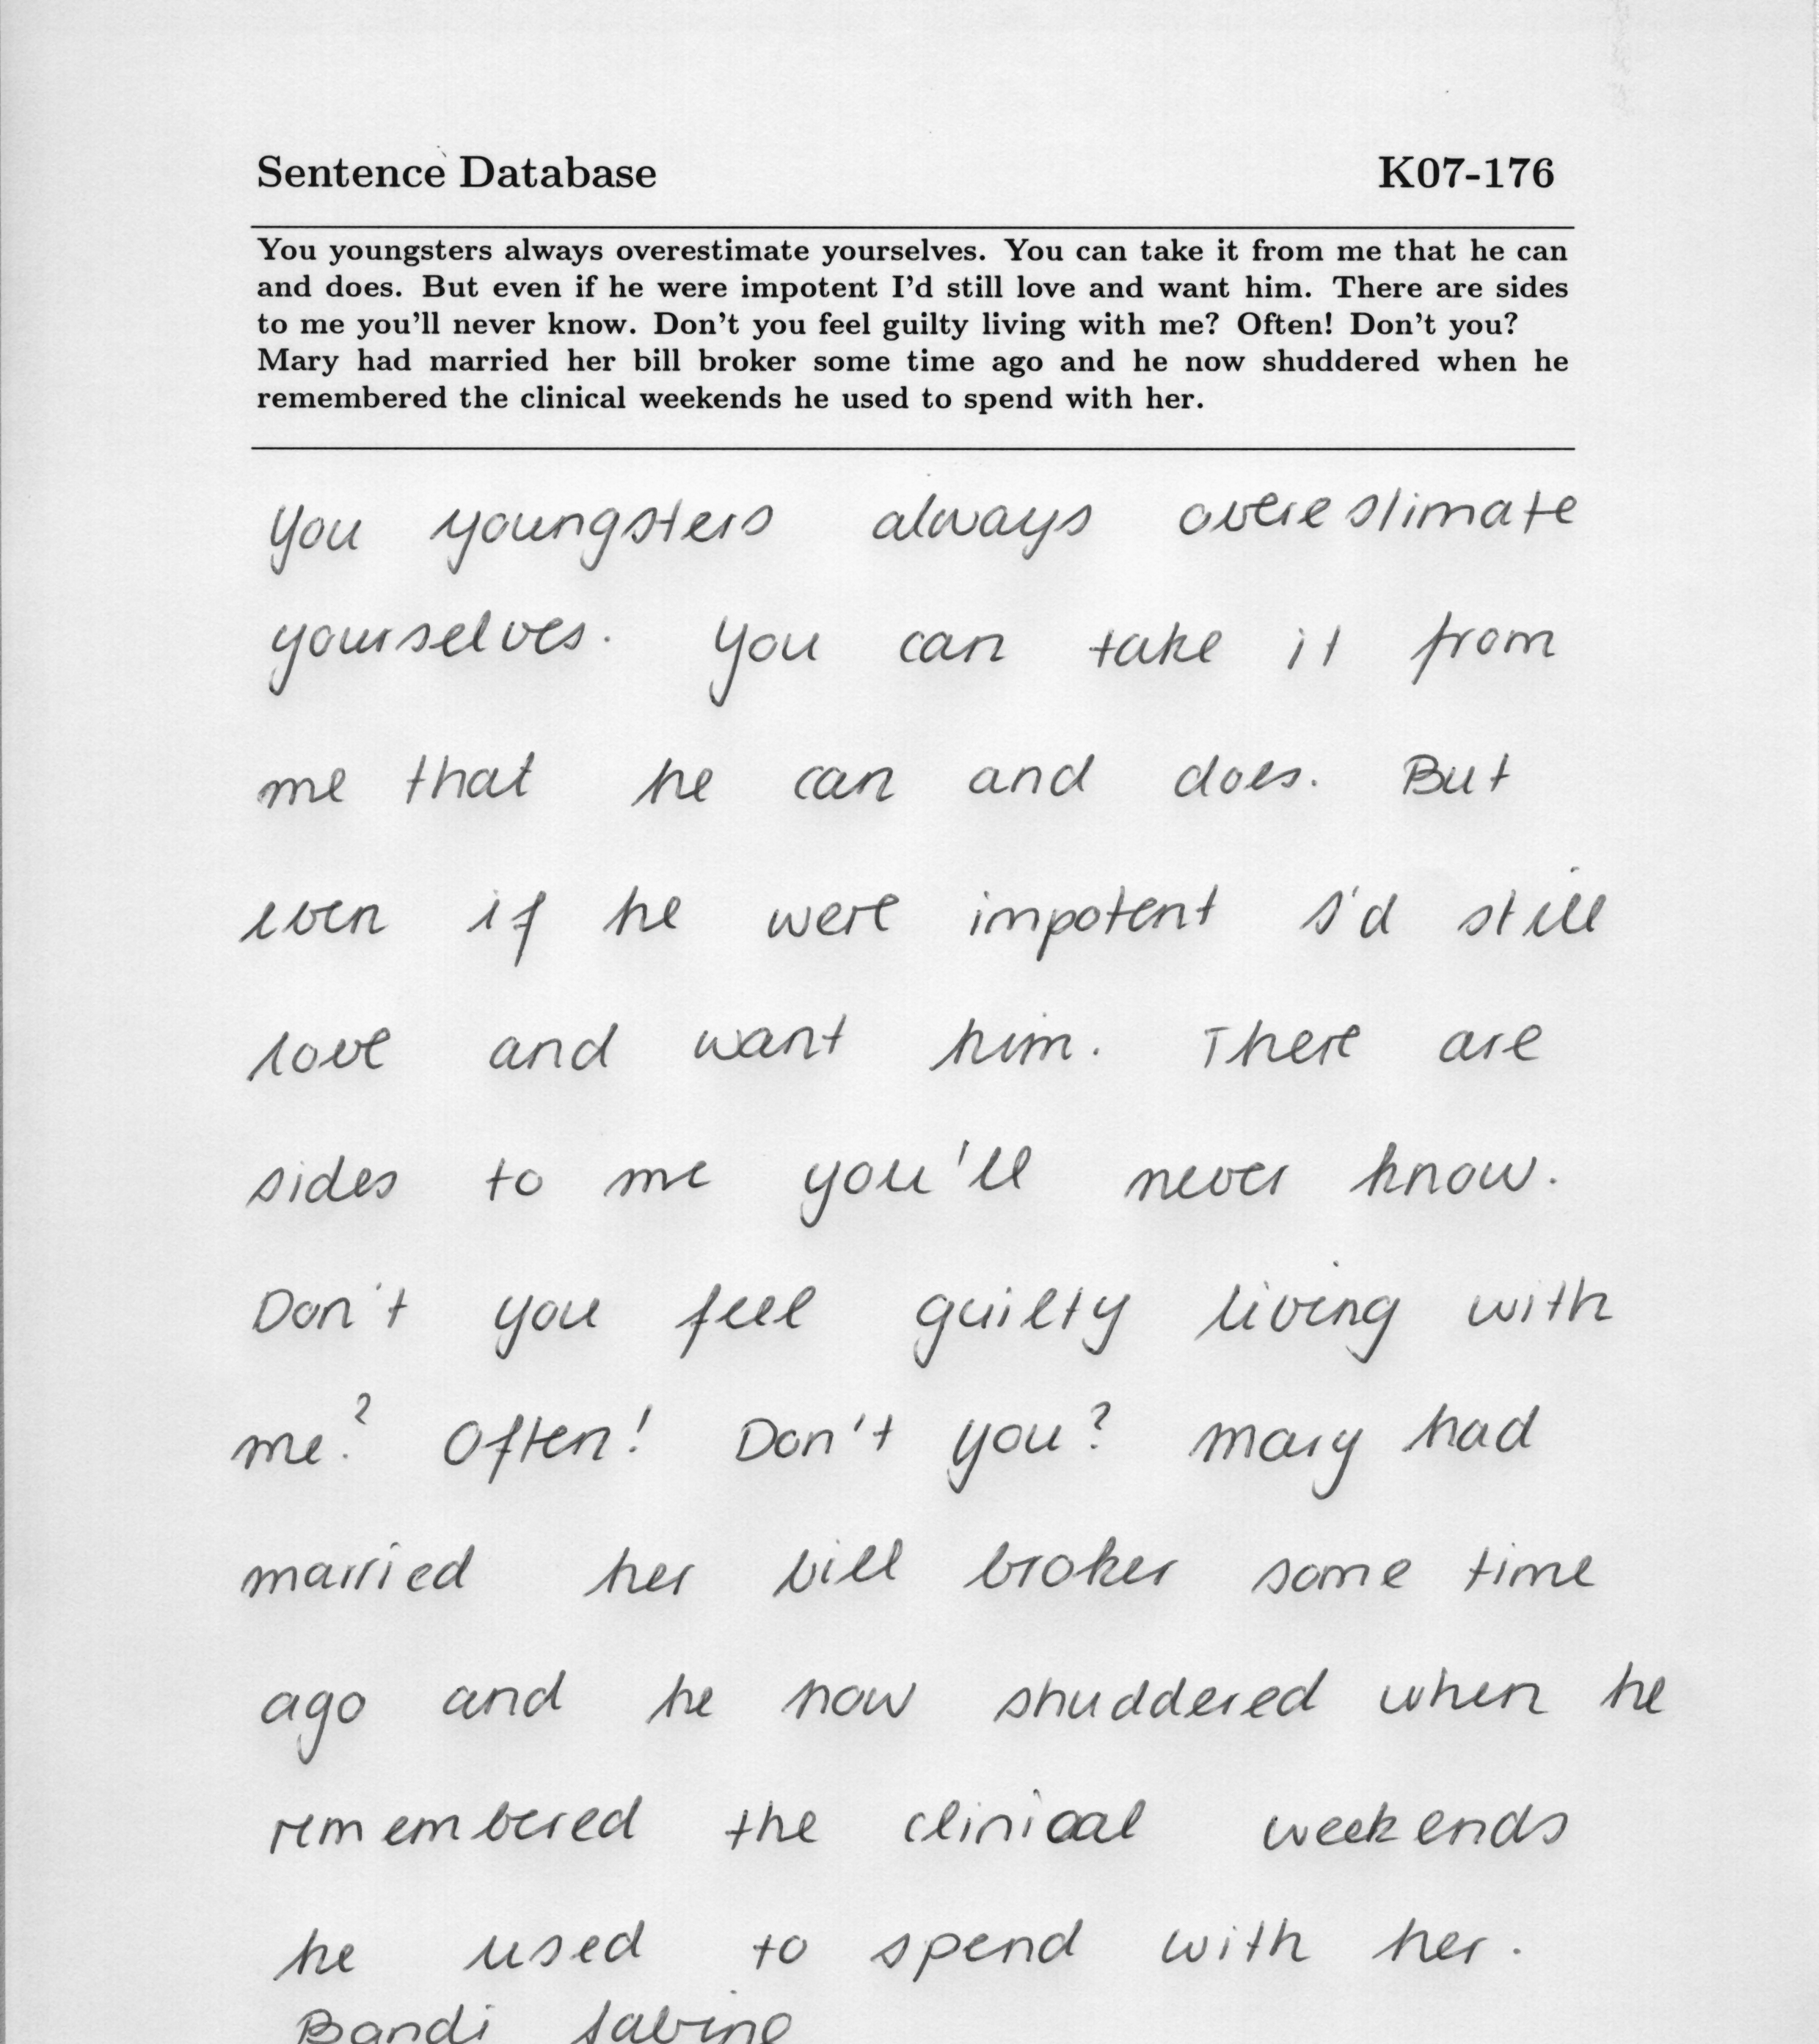 Sentence Database K07-176
You youngsters always overestimate yourselves. You can take it from me that he can
and does. But even if he were impotent I'd still love and want him. There are sides
to me you'll never know. Don't you feel guilty living with me? Often! Don't you?
Mary had married her bill broker some time ago and he now shuddered when he
remembered the clinical weekends he used to spend with her.
You youngsters always overestimate
yourselves. You can take it from
me that he can and does. But
even if he were impotent I'd still
love and want him. There are
sides to me you'll never know.
Don't you feel guilty living with
me? Often! Don't you? Mary had
married her bill broker some time
ago and he now shuddered when he
remembered the clinical weekends
he used to spend with her.
Bandi Sabine